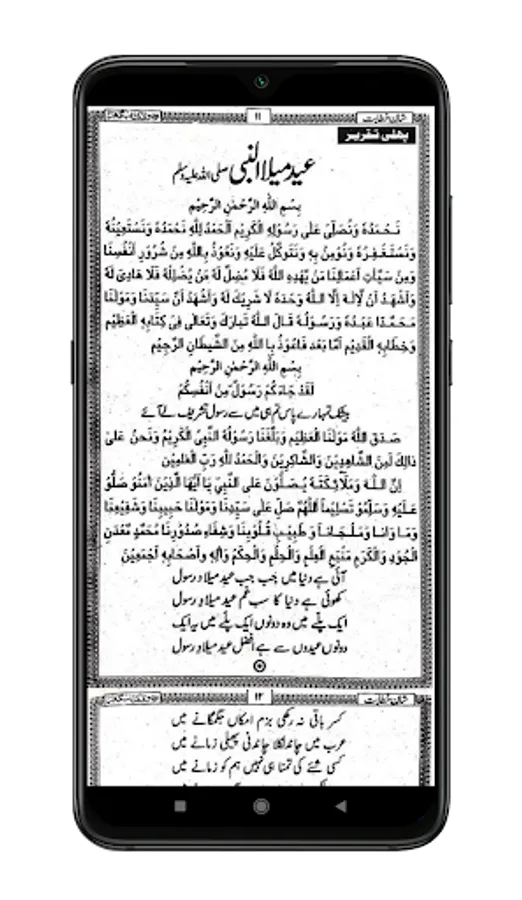 ۱۱
شان خطابت
پہلی تقریر
عید میلاالنبی صلی اللہ علیہ وسلم
بِسْمِ اللّٰهِ الرَّحْمٰنِ الرَّحِيْمِ
نَحْمَدُهٗ وَنُصَلِّیْ عَلٰی رَسُوْلِهِ الْكَرِيْمِ اَلْحَمْدُ لِلّٰهِ نَحْمَدُهٗ وَنَسْتَعِيْنُهٗ
وَنَسْتَغْفِرُهٗ وَنُؤْمِنُ بِهٖ وَنَتَوَكَّلُ عَلَيْهِ وَنَعُوْذُ بِاللّٰهِ مِنْ شُرُوْرِ اَنْفُسِنَا
وَمِنْ سَيِّاٰتِ اَعْمَالِنَا مَنْ يَّهْدِهِ اللّٰهُ فَلَا مُضِلَّ لَهٗ مَنْ يُّضْلِلْهُ فَلَا هَادِیَ لَهٗ
وَاَشْهَدُ اَنْ لَّا اِلٰهَ اِلَّا اللّٰهُ وَحْدَهٗ لَا شَرِيْكَ لَهٗ وَاَشْهَدُ اَنَّ سَيِّدَنَا وَمَوْلٰنَا
مُحَمَّدًا عَبْدُهٗ وَرَسُوْلُهٗ قَالَ اللّٰهُ تَبَارَكَ وَتَعَالٰی فِیْ كِتَابِهِ الْعَظِيْمِ
وَخِطَابِهِ الْقَدِيْمِ اَمَّا بَعْدُ فَاَعُوْذُ بِاللّٰهِ مِنَ الشَّيْطَانِ الرَّجِيْمِ
بِسْمِ اللّٰهِ الرَّحْمٰنِ الرَّحِيْمِ
لَقَدْ جَاءَكُمْ رَسُوْلٌ مِنْ اَنْفُسِكُمْ
بیشک تمہارے پاس تم ہی میں سے رسول تشریف لے آئے
صَدَقَ اللّٰهُ مَوْلٰنَا الْعَظِيْمُ وَبَلَّغَنَا رَسُوْلُهُ النَّبِیُّ الْكَرِيْمُ وَنَحْنُ عَلٰی
ذٰالِكَ لَمِنَ الشَّاهِدِيْنَ وَالشَّاكِرِيْنَ وَالْحَمْدُ لِلّٰهِ رَبِّ الْعٰلَمِيْنَ
اِنَّ اللّٰهَ وَمَلَآئِكَتَهٗ يُصَلُّوْنَ عَلَی النَّبِیِّ يَا اَيُّهَا الَّذِيْنَ اٰمَنُوْ صَلُّوْ
عَلَيْهِ وَسَلِّمُوْ تَسْلِيْمًا اَللّٰهُمَّ صَلِّ عَلٰی سَيِّدِنَا وَمَوْلٰنَا حَبِيْبِنَا وَشَفِيْعِنَا
وَمَاوَانَا وَمَلْجَانَا وَ طَبِيْبِ قُلُوْبِنَا وَشِفَاءِ صُدُوْرِنَا مُحَمَّدٍ مَّعْدَنِ
الْجُوْدِ وَالْكَرَمِ مَنْبَعِ الْعِلْمِ وَالْحِلْمِ وَالْحِكَمِ وَاٰلِهٖ وَاَصْحَابِهٖ اَجْمَعِيْنَ
آئی ہے دنیا میں جب جب عید میلادِ رسول
کھوئی ہے دنیا کا سب غم عید میلادِ رسول
ایک پلّے میں وہ دونوں ایک پلّے میں یہ ایک
دونوں عیدوں سے ہے افضل عید میلادِ رسول
۱۲
شان خطابت
کسر باقی نہ رکھی بزم امکاں جگمگانے میں
عرب میں چاند نکلا چاندنی پھیلی زمانے میں
کسی شئے کی تمنا ہی نہیں ہم کو زمانے میں